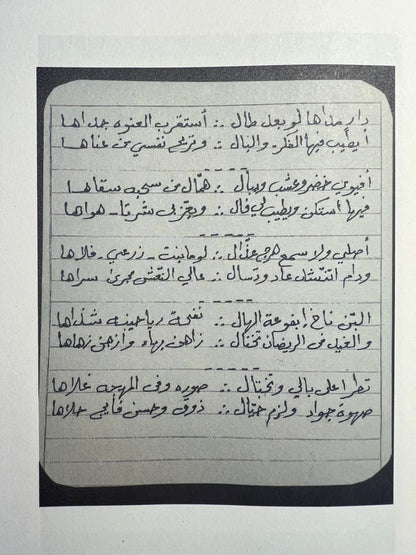 دار مداها لو بعد طال ∴ أستقرب العنوه جداها
أيطيب فيها الفكر والبال ∴ وتريح نفسي من عناها
-----
أفيوي خضر وعشب وسبال ∴ همّال من سحبه سقاها
فيها أستكن ويطيب لي فال ∴ ويعز لي شرتا هواها
-----
أصلي ولا سمع هرج عذّال ∴ لو ما بنت زرعي فلاها
ودام النشد عاد وتسال ∴ عالي النقش مجرى سراها
-----
البن فاخ ايفوعة الهال ∴ نفحة رياحينه شذاها
والغيل في الريضان تختال ∴ زاهن بهاء وازهى زهاها
-----
تطرا على بالي وتختال ∴ صوره وفي المهجه غلاها
صهوة جواد ولزم خيّال ∴ ذوق وحسن فايج حلاها